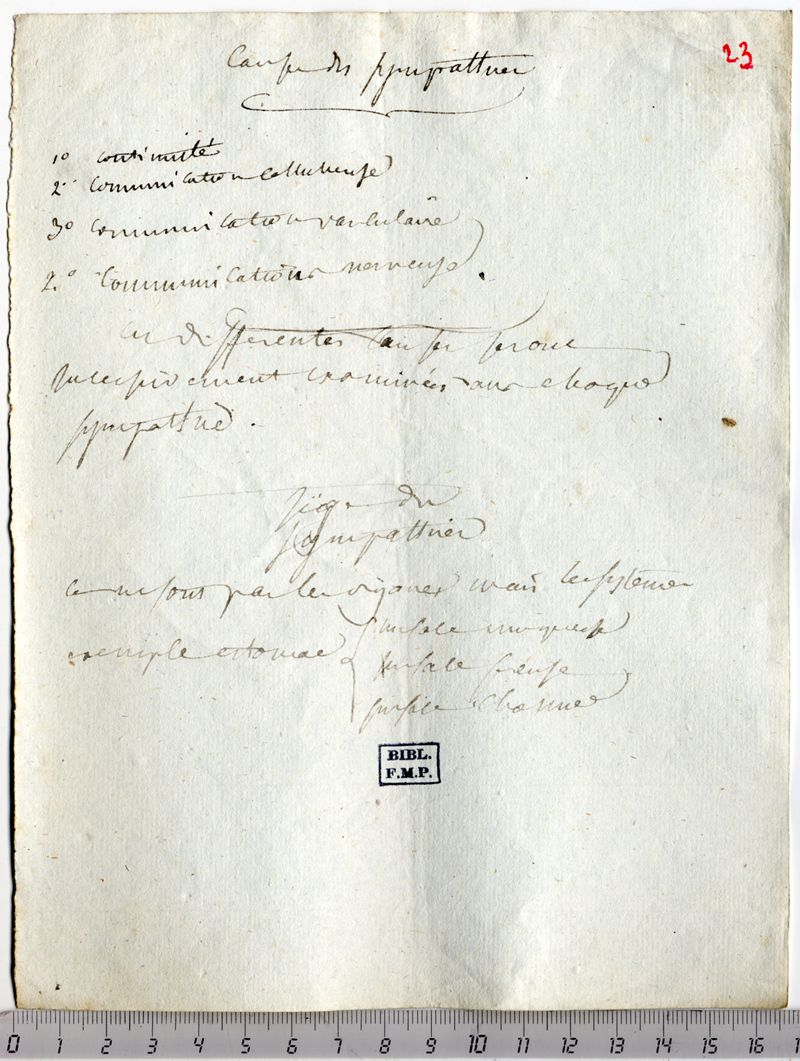 23
Cause des sympathies
1º continuité
2º communication celluleuse
3º communication vasculaire
2.º communication nerveuse.
ces differentes causes seront
successivement examinées dans chaque
sympathie.
siège des
sympathies
ce ne sont pas les organes mais les systèmes
exemple estomac
surface muqueuse
surface sereuse
surface charnue
BIBL.
F.M.P.
0 1 2 3 4 5 6 7 8 9 10 11 12 13 14 15 16 1